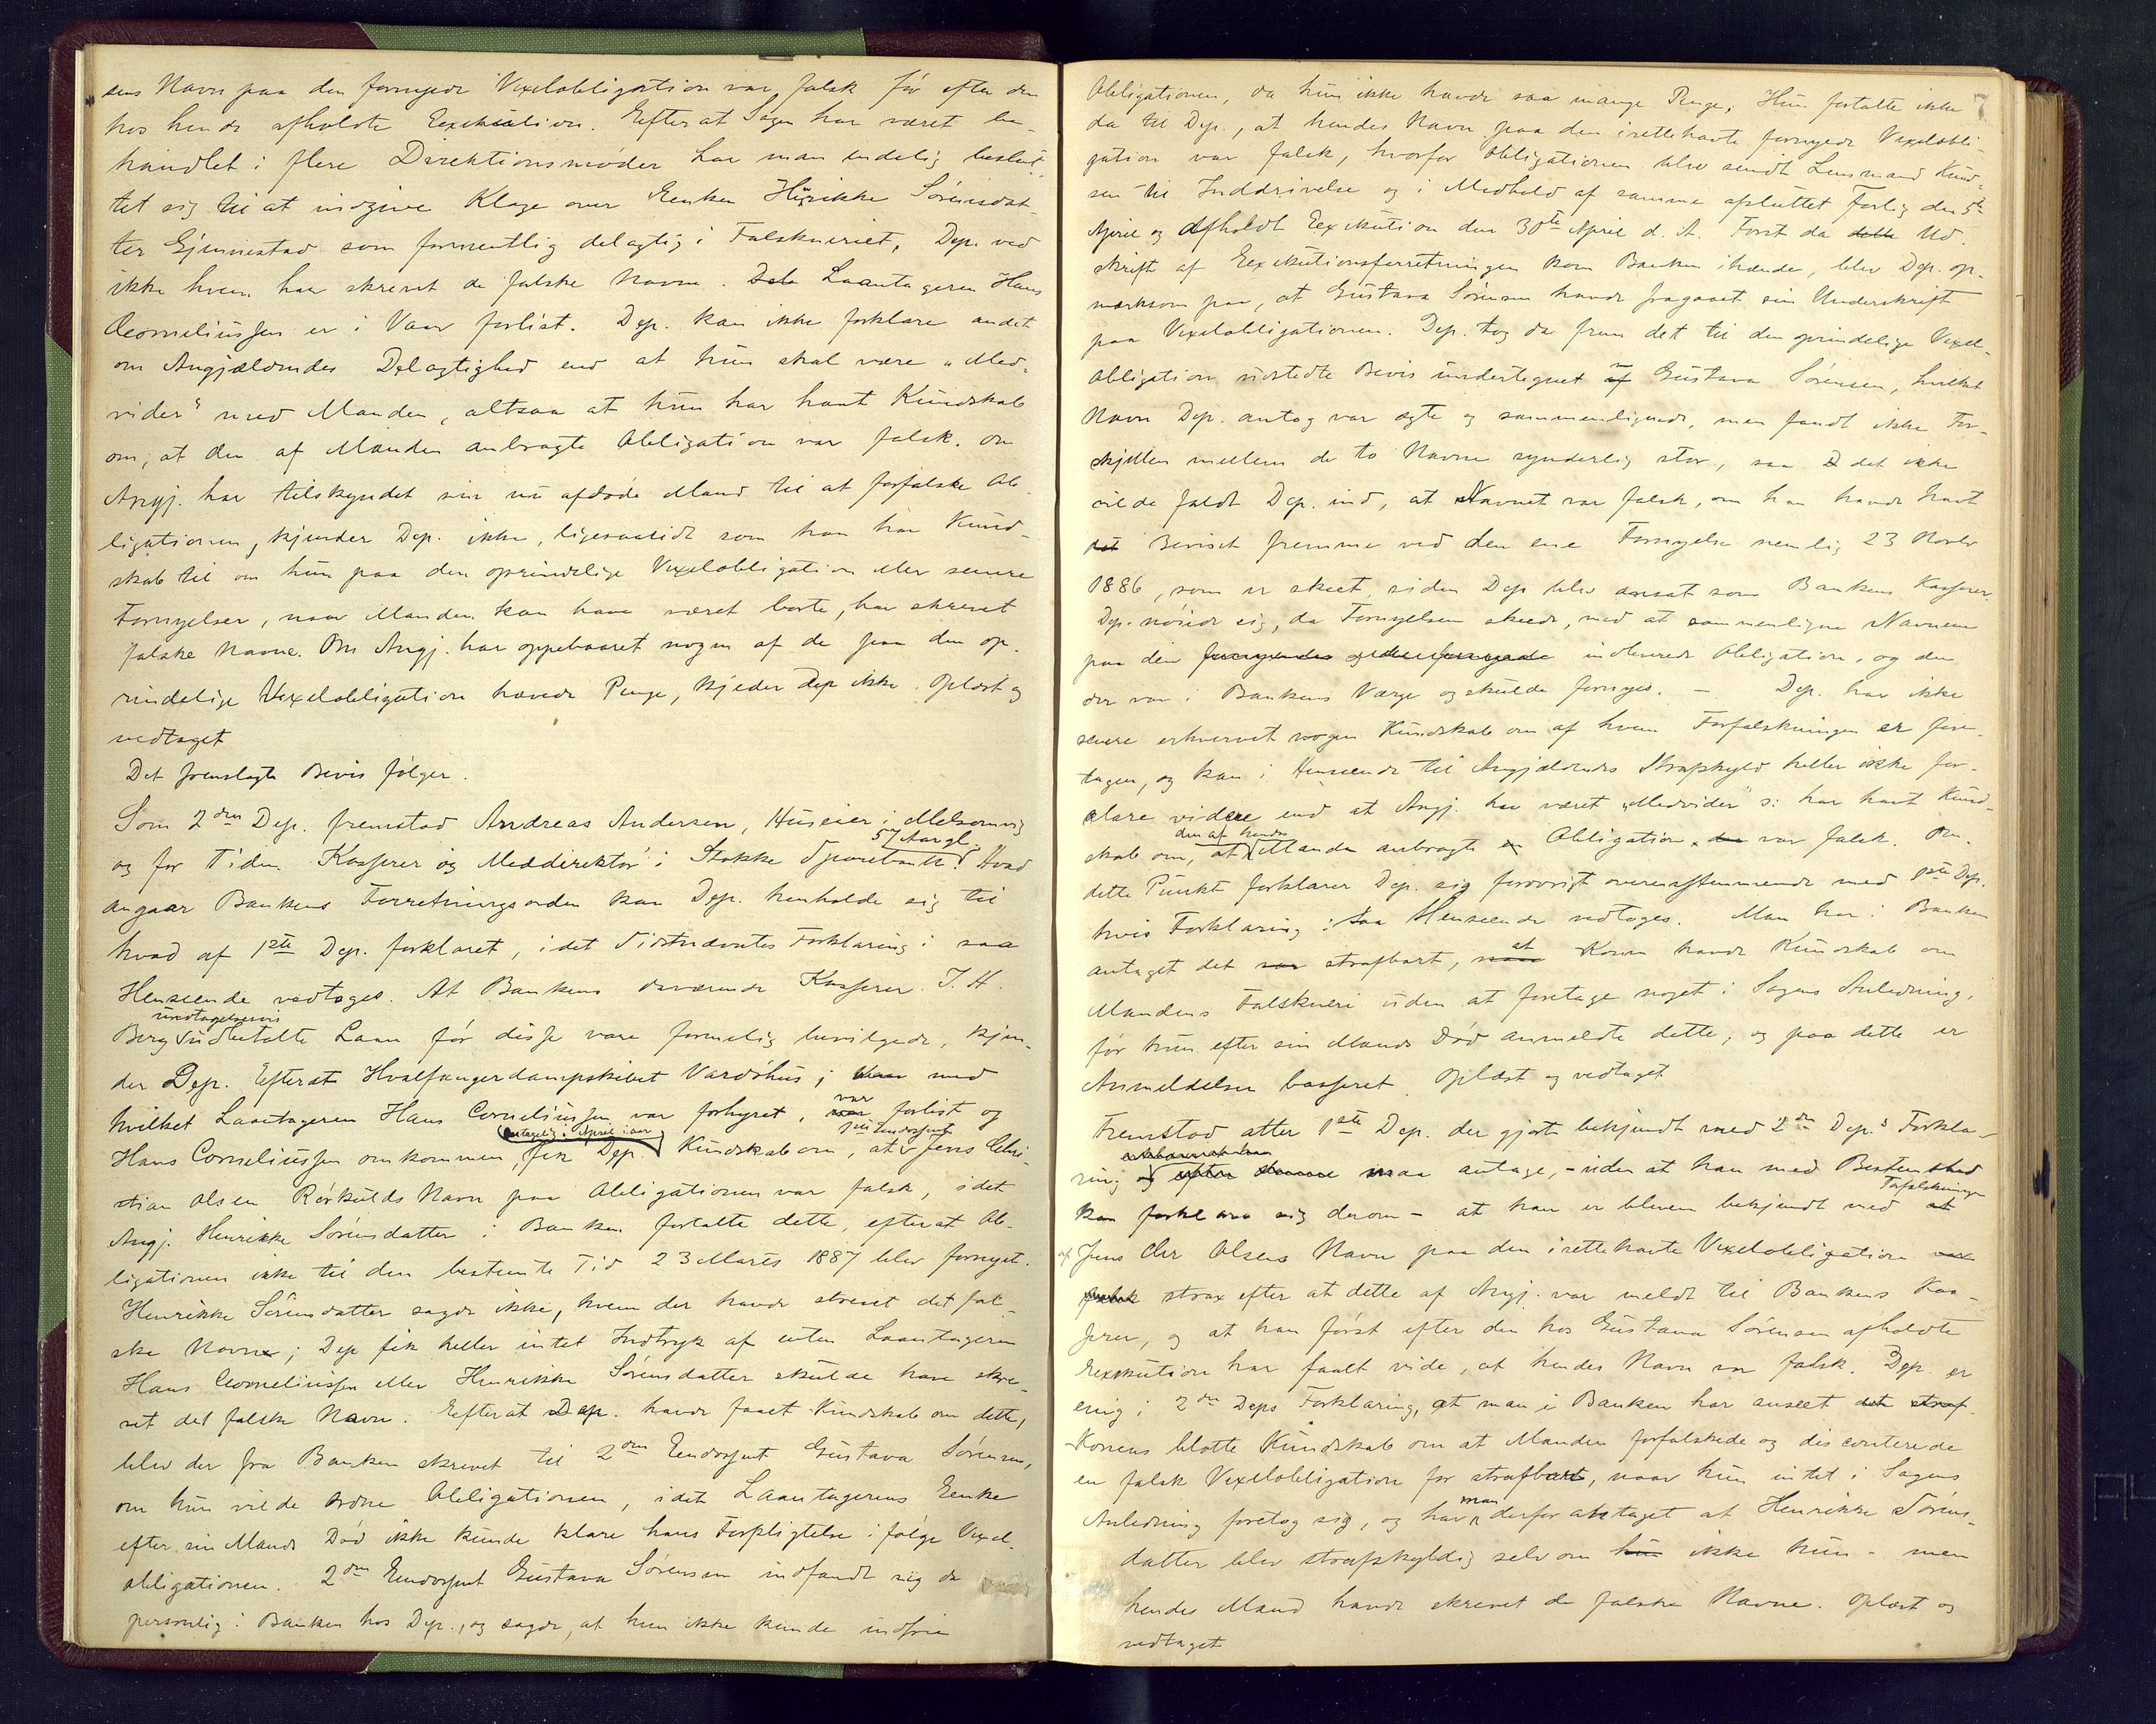 sens Navn paa den fornyede Vexelobligation var falsk før efter den
hos hende afholdte Eexekution. Efter at Sagen har været be-
handlet i flere Direktionsmøder har man endelig beslut-
tet sig til at indgive Klage over Enken Henrikke Sørensdat-
ter Gjennestad som formentlig delagtig i Falskneriet, Dep. ved
ikke hvem har skrevet de falske Navne. Laantageren Hans
Corneliussen er i Vaar forlist. Dep. kan ikke forklare andet
om Angjældendes Delagtighed end at hun skal være „Med-
vider“ med Manden, altsaa at hun har havt Kundskab
om, at den af Manden anbragte Obligation var falsk. Om
Angj. har tilskyndet sin nu afdøde Mand til at forfalske Ob-
ligationen, kjender Dep. ikke, ligesaalidt som han har Kund-
skab til om hun paa den oprindelige Vexelobligation eller senere
Fornyelser, naar Manden kan have været borte, har skrevet
falske Navne. Om Angj. har oppebaaret nogen af de paa den op-
rindelige Vexelobligation hævede Penge, kjender Dep ikke. Oplæst og
vedtaget
Det fremlagte Bevis følger.
Som 2den Dep. fremstod Andreas Andersen, Huseier i Melsomvig
57 Aar gl.
og for Tiden Kasserer og Meddirektør i Stokke Sparebank. Hvad
angaar Bankens Forretningsorden kan Dep. henholde sig til
hvad af 1ste Dep. forklaret, idet Sidstnævntes Forklaring i saa
Henseende vedtages. At Bankens daværende Kasserer J. H.
undtagelsesvis
Berg udbetalte Laan før disse vare formelig bevilgede, kjen-
der Dep. Efterat Hvalfangerdampskibet Vardøhus, med
hvilket Laantageren Hans Corneliussen var forhyret, var forlist og
(antagelig i April i aar) 1ste Endossent
Hans Corneliussen omkommen, fik Dep. Kundskab om, at Jens Chri-
stian Olsen Rørkulds Navn paa Obligationen var falsk, idet
Angj. Henrikke Sørensdatter i Banken fortalte dette, efterat Ob-
ligationen ikke til den bestemte Tid 23 Marts 1887 blev fornyet.
Henrikke Sørensdatter sagde ikke, hvem der havde skrevet det fal-
ske Navn; Dep fik heller intet Indtryk af enten Laantageren
Hans Corneliussen eller Henrikke Sørensdatter skulde have skre-
vet det falske Navn. Efterat Dep. havde faaet Kundskab om dette,
blev der fra Banken skrevet til 2den Endossent Gustava Sørensen,
om hun vilde ordne Obligationen, idet Laantagerens Enke
efter sin Mands Død ikke kunde klare hans Forpligtelse i følge Vexel-
obligationen. 2den Endossent Gustava Sørensen indfandt sig da
personlig i Banken hos Dep., og sagde, at hun ikke kunde indfrie
7
Obligationen, da hun ikke havde saa mange Penge. Hun fortalte ikke
da til Dep., at hendes Navn paa den irettehavte fornyede Vexelobli-
gation var falsk, hvorfor Obligationen blev sendt Lensmand Knud-
sen til Inddrivelse og i Medhold af samme afsluttet Forlig den 5te
April og afholdt Eexekution den 30te April d. A. Først da Ud-
skrift af Eexekutionsforretningen kom Banken ihænde, blev Dep. op-
mærksom paa, at Gustava Sørensen havde fragaaet sin Underskrift
paa Vexelobligationen. Dep. tog da frem det til den oprindelige Vexel-
obligation udstedte Bevis undertegnet Gustava Sørensen, hvilket
Navn Dep. antog var ægte og sammenlignede, men fandt ikke For-
skjellen mellem de to Navne synderlig stor, saa det ikke
vilde faldt Dep. ind, at Navnet var falsk, om han havde havt
Beviset fremme ved den ene Fornyelse nemlig 23 Novbr
1886, som er skeet, siden Dep blev ansat som Bankens Kasserer.
Dep. nøiede sig, da Fornyelsen skede, med at sammenligne Navnene
paa den indleverede Obligation, og den
der var i Bankens Værge og skulde fornyes. — Dep. har ikke
senere erhvervet nogen Kundskab om af hvem Forfalskningen er fore-
tagen, og kan i Henseende til Angjældendes Strafskyld heller ikke for-
klare videre end at Angj. har været „Medvider“ ɔ: har havt Kund-
den af hendes
skab om, at Manden anbragte Obligation var falsk. Om
dette Punkt forklarer Dep. sig forøvrigt overensstemmende med 1ste Dep.
hvis Forklaring i saa Henseende vedtages. Man har i Banken
antaget det strafbart, at Konen havde Kundskab om
Mandens Falskneri uden at foretage noget i Sagens Anledning,
før hun efter sin Mands Død anmeldte dette; og paa dette er
Anmeldelsen basseret. Oplæst og vedtaget
Fremstod atter 1ste Dep. der gjort bekjendt med 2den Dep.s Forkla-
ring maa antage, – uden at han med Bestemthed
Forfalskningen
kan forklare sig derom – at han er bleven bekjendt med
af Jens Chr Olsens Navn paa den irettehavte Vexelobligation
strax efter at dette af Angj. var meldt til Bankens Kas-
serer, og at han først efter den hos Gustava Sørensen afholdte
Eexekution har faaet vide, at hendes Navn var falsk. Dep. er
enig i 2den Deps Forklaring, at man i Banken har anseet
Konens blotte Kundskab om at Manden forfalskede og disconterede
en falsk Vexelobligation for strafbart, naar hun intet i Sagens
Anledning foretog sig, og har man derfor antaget at Henrikke Sørens-
datter blev strafskyldig selv om ikke hun – men
hendes Mand havde skrevet de falske Navne. Oplæst og
vedtaget